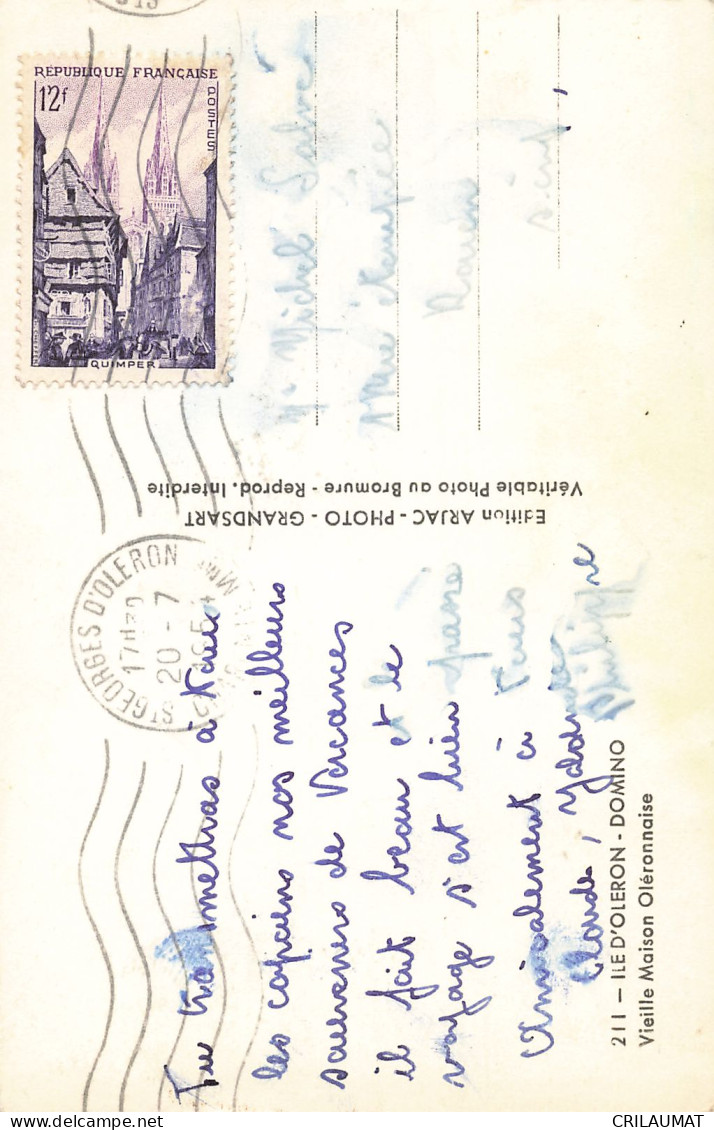 RÉPUBLIQUE FRANÇAISE
12f
POSTES
QUIMPER
ST GEORGES D'OLERON
17H30
20 - 7
195
CHTE MME
Mr Michel
rue
Rouen
S. inf
Edition ARJAC - PHOTO - GRANDSART
Véritable Photo au Bromure - Reprod. Interdite
Tu transmettras à tous
les copains nos meilleurs
souvenirs de Vacances
il fait beau et le
voyage s'est bien passé
Amicalement à Tous
Claude, Yolande
Philippe
211 — ILE D'OLERON - DOMINO
Vieille Maison Oléronnaise
CRILAUMAT